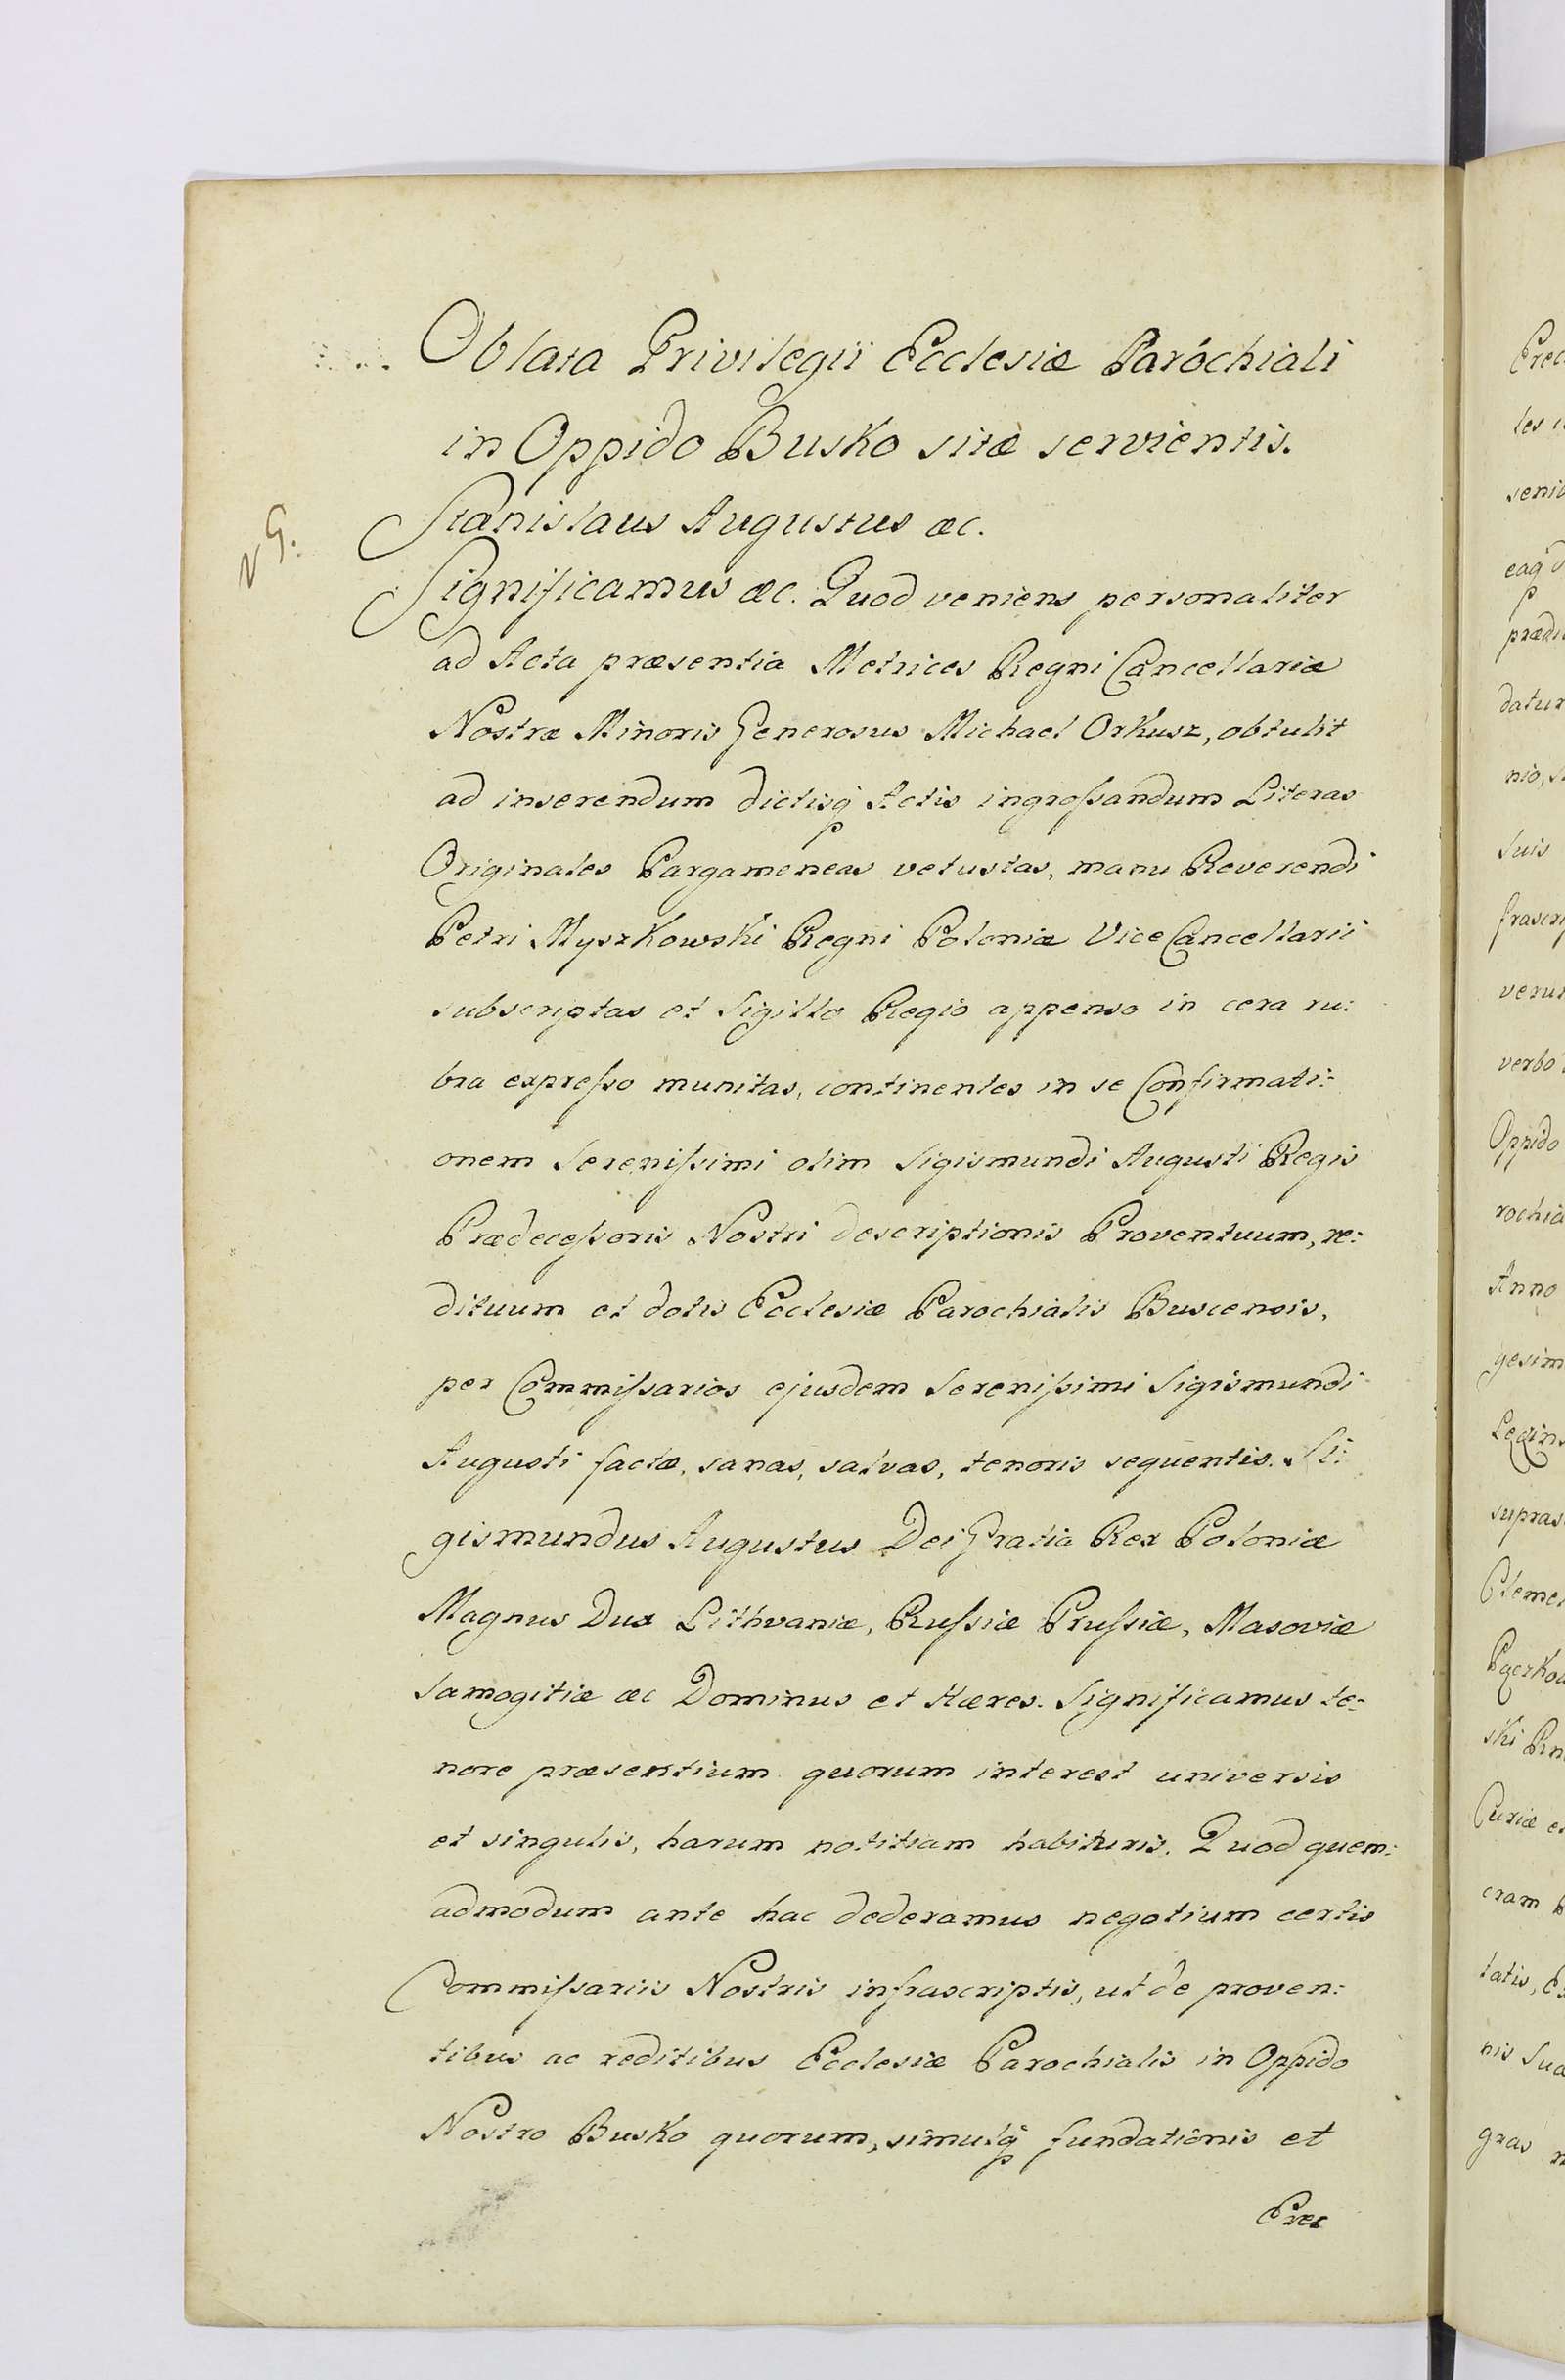 Oblata Privilegii Ecclesiæ Parochiali
in Oppido Busko sitæ servientis.
Stanislaus Augustus &c.
Significamus &c. Quod veniens personaliter
ad Acta præsentia Metrices Regni Cancellariæ
Nostræ Minoris Generosus Michael Orkusz, obtulit
ad inserendum dictisq Actis ingroſsandum Literas
Originales Pargameneas vetustas, manu Reverendi
Petri Myszkowski Regni Poloniæ Vice Cancellarii
subscriptas et Sigillo Regio appenso in cera ru:
bra expreſso munitas, continentes in se Confirmati:
onem Sereniſsimi olim Sigismundi Augusti Regis
Prædeceſsoris Nostri descriptionis Proventuum, re:
dituum et dotis Ecclesiæ Parochialis Buscensis,
per Commiſsarios ejusdem Sereniſsimi Sigismundi
Augusti factæ, sanas, salvas, tenoris sequentis. Si:
gismundus Augustus Dei Gratia Rex Poloniæ
Magnus Dux Lithvaniæ, Ruſsiæ Pruſsiæ, Masoviæ
Samogitiæ &c Dominus et Hæres. Significamus te:
nore præsentium quorum interest universis
et singulis, harum notitiam habituris. Quod quem:
admodum ante hac dederamus negotium certis
Commiſsariis Nostris infrascriptis, ut de proven:
tibus ac reditibus Ecclesiæ Parochialis in Oppido
Nostro Busko quorum, simulq fundationis et
Erec